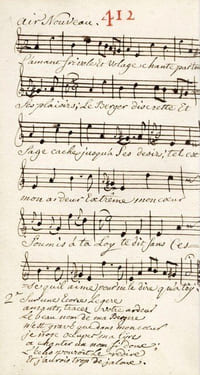 Air Nouveau.
412
L'amant frivole et Volage chante partout
Ses plaisirs; Le Berger discrette Et
Sage cache jusqu'a Ses desirs; tel est
mon ardeur Extrême mon cœur
Soumis à ta Loy te dit sans ces
se qu'il aime pour ne le dire qu'a toy
2
Sur une Ecorce Legere
amants, tracés votre ardeur
Le beau nom de ma Bergere
n'est gravé que dans mon cœur
ma lire
a chanter un nom
L'Echo pouroit Le redire
Et j'aurois trop de jaloux.